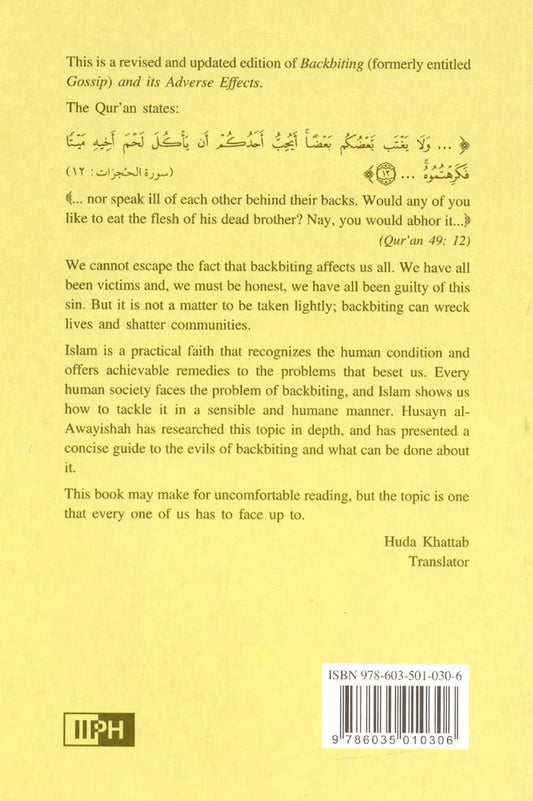 This is a revised and updated edition of Backbiting (formerly entitled
Gossip) and its Adverse Effects.
The Qur'an states:
﴿ ... وَلَا يَغْتَب بَّعْضُكُم بَعْضًا ۚ أَيُحِبُّ أَحَدُكُمْ أَن يَأْكُلَ لَحْمَ أَخِيهِ مَيْتًا
فَكَرِهْتُمُوهُ ۚ ... ١٢﴾ (سورة الحُجرَات: ١٢)
﴾... nor speak ill of each other behind their backs. Would any of you
like to eat the flesh of his dead brother? Nay, you would abhor it...﴿
(Qur'an 49: 12)
We cannot escape the fact that backbiting affects us all. We have all
been victims and, we must be honest, we have all been guilty of this
sin. But it is not a matter to be taken lightly; backbiting can wreck
lives and shatter communities.
Islam is a practical faith that recognizes the human condition and
offers achievable remedies to the problems that beset us. Every
human society faces the problem of backbiting, and Islam shows us
how to tackle it in a sensible and humane manner. Husayn al-
Awayishah has researched this topic in depth, and has presented a
concise guide to the evils of backbiting and what can be done about
it.
This book may make for uncomfortable reading, but the topic is one
that every one of us has to face up to.
Huda Khattab
Translator
ISBN 978-603-501-030-6
9 786035 010306
IIPH